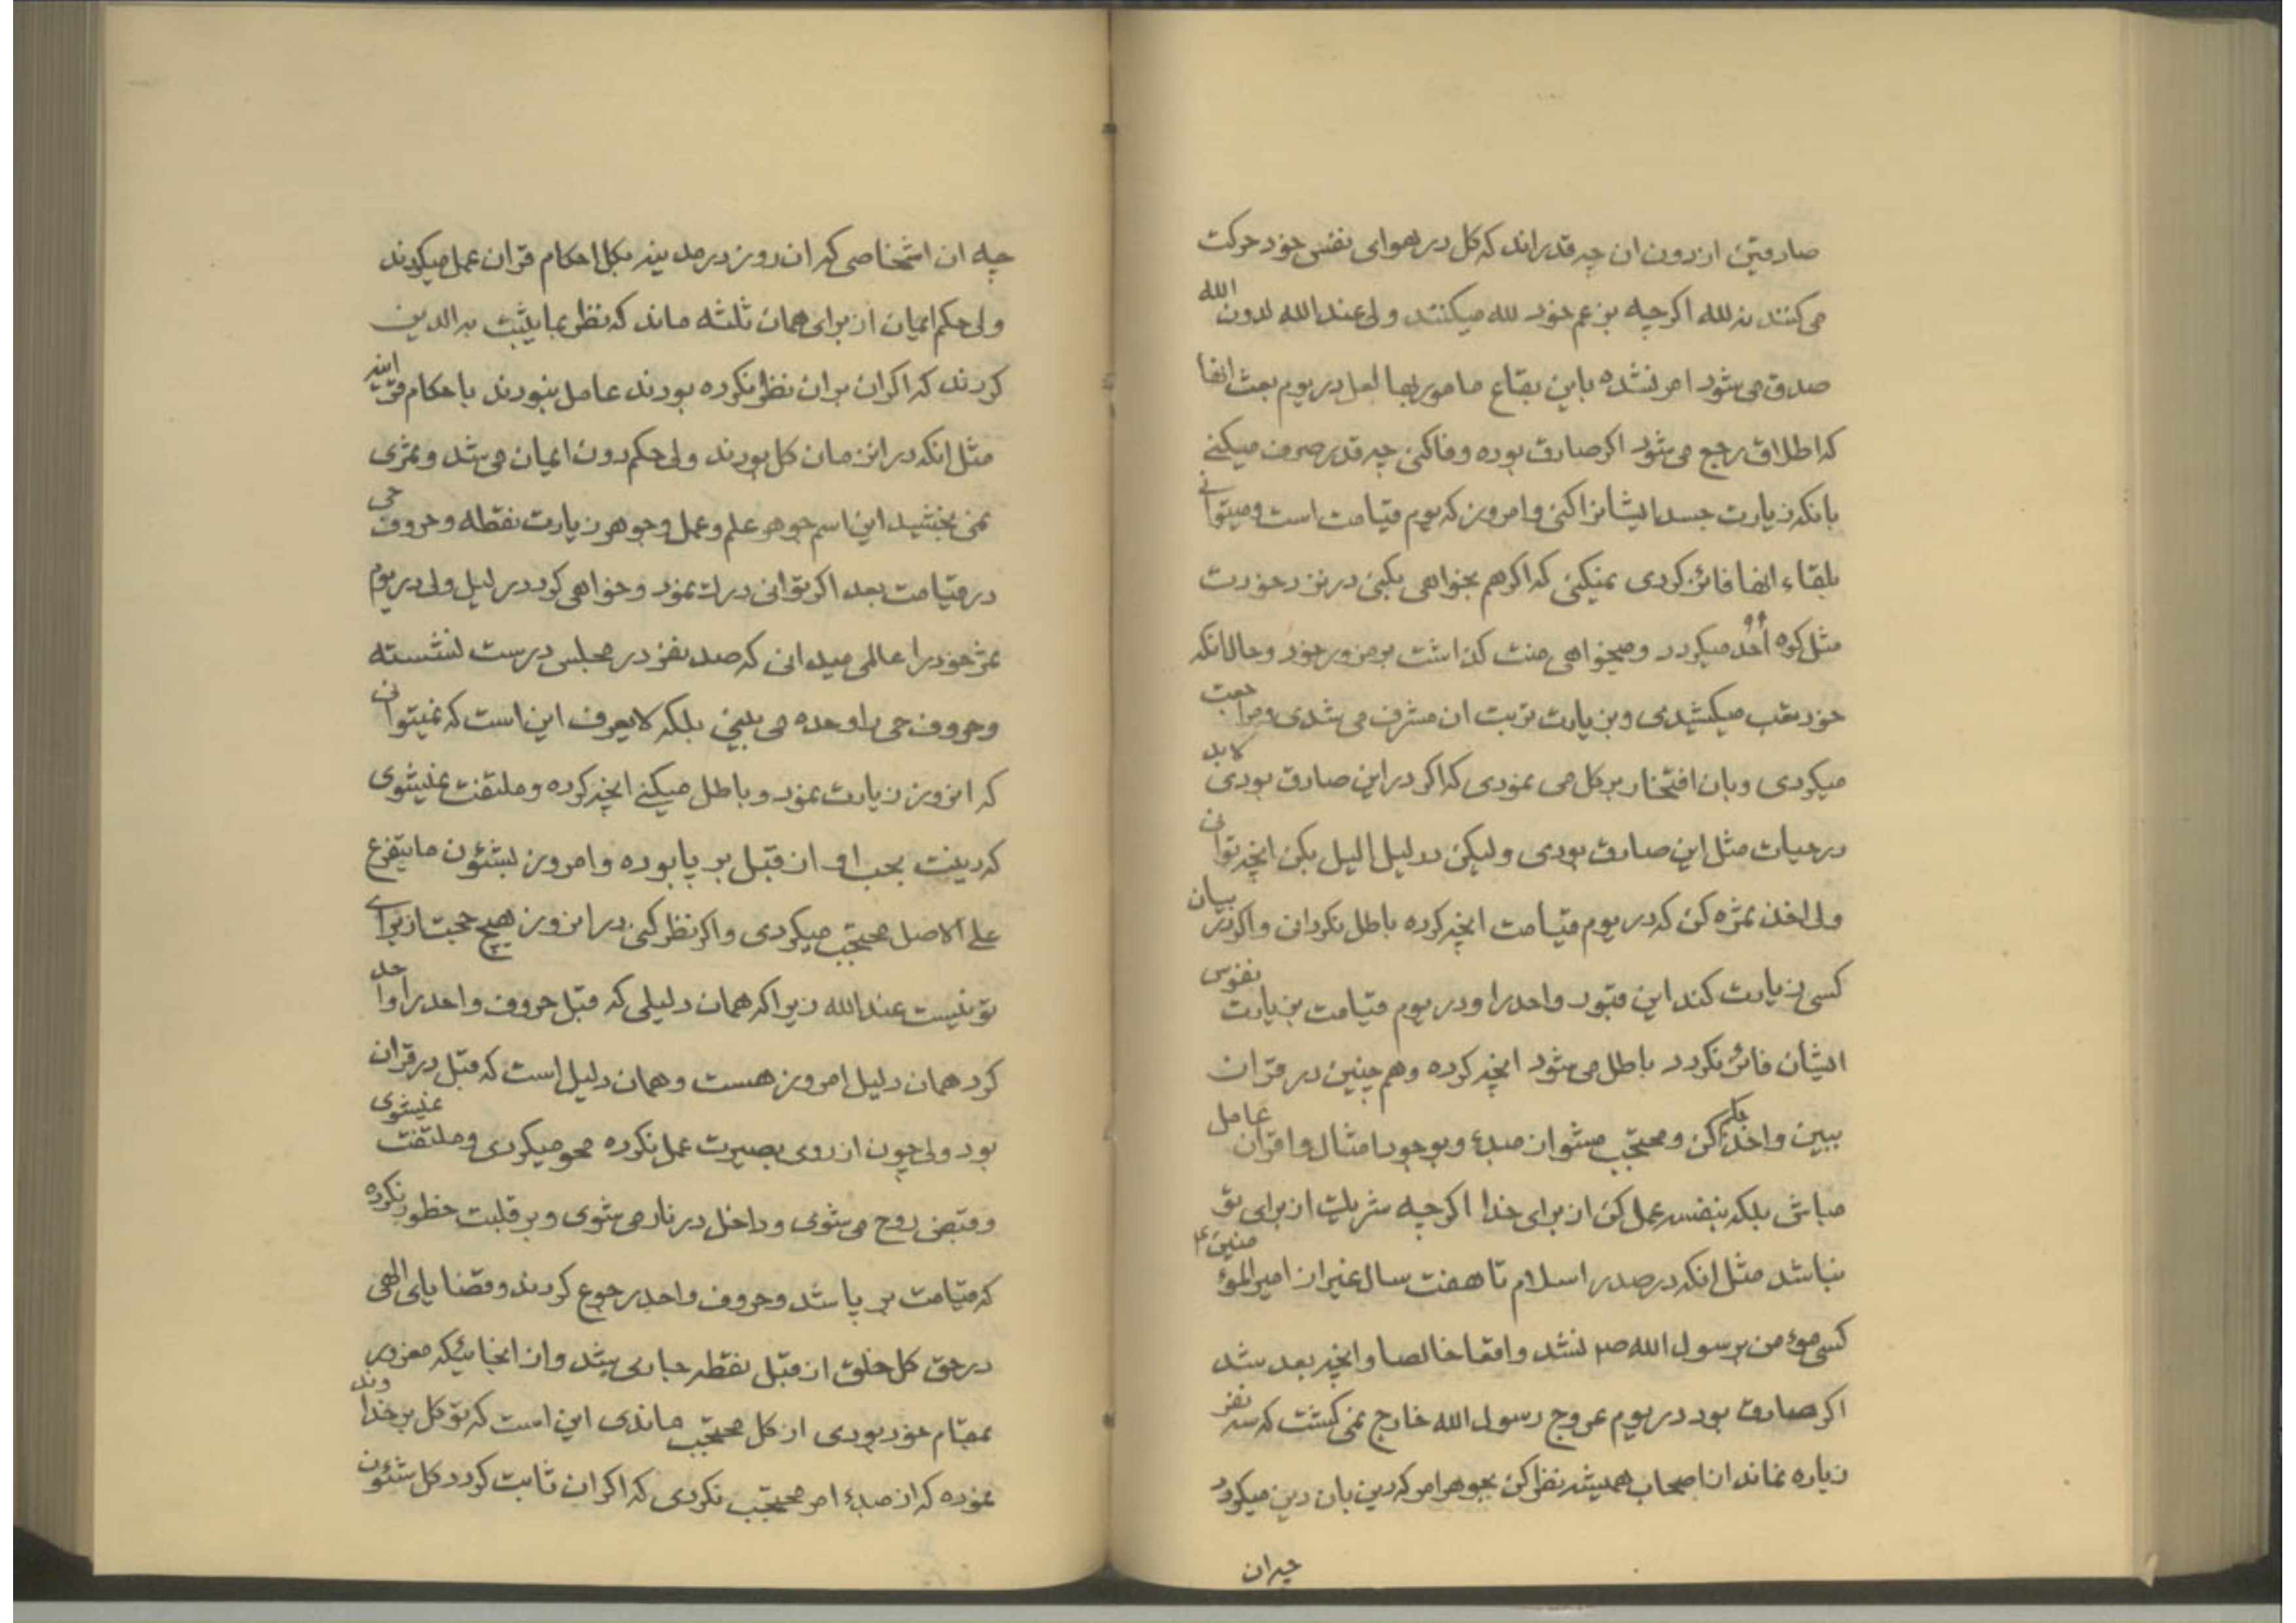 صادقین از دون ان چه قدر اند که کل در هوای نفس خود حرکت
می کنند نه لله اکرچه بزعم خود لله میکنند ولی عند الله لدون الله
صدق می شود امر نشده باین بقاع مامور بها لعل در یوم بعث انها
که اطلاق رجع می شود اکر صادق بوده وفا کنی چه قدر صرف میکنی
بانکه زیارت جسد ایشانرا کنی و امروز که یوم قیامت است و میتوانی
بلقاء انها فائز کردی نمیکنی که اکر هم بخواهی بکنی در نزد خودت
مثل کوه احد میکردد و میخواهی منت کذاشت بر مزور خود و حال انکه
خود تعب میکشیدی و بزیارت تربت ان مشرف می شدی و مراجعت
میکردی و بان افتخار بر کل می نمودی که اکر در این صادق بودی لابد
در حیات مثل این صادق بودی ولیکن در لیل الیل بکن انچه توانی
ولی اخذ ثمره کن که در یوم قیامت انچه کرده باطل نکردانی و اکر در بیان
کسی زیارت کند این قبور واحد را و در یوم قیامت بزیارت نفوس
ایشان فائز نکردد باطل می شود انچه کرده و هم چنین در قران
ببین و اخذ حکم کن و محتجب مشو از مبدء و بوجود امثال و اقران عامل
مباش بلکه بنفسه عمل کن از برای خدا اکرچه شریک از برای تو
نباشد مثل انکه در صدر اسلام تا هفت سال غیر از امیر المؤمنین ع
کسی مؤمن برسول الله ص نشد واقعا خالصا و انچه بعد شد
اکر صادق بود در یوم عروج رسول الله خارج نمی کشت که سه نفر
زیاده نماند از اصحاب همیشه نظر کن بجوهر امر که دین بان دین میکردد
چه ان
چه ان اشخاصی که ان روز در مدینه بکل احکام قران عمل میکردند
ولی حکم ایمان از برای همان ثلثه ماند که نظر بما یثبت به الدین
کردند که اکر ان بران نظر نکرده بودند عامل نبودند باحکام قرانیه
مثل انکه در انزمان کل بودند ولی حکم دون ایمان می شد و ثمری
نمی بخشید این اسم جوهر علم و عمل و جوهر زیارت نقطه و حروف حی
در قیامت بعد اکر توانی درک نمود و خواهی کرد در لیل ولی در یوم
ثمر خود را عالمی میدانی که صد نفر در مجلس درست نشسته
و حروف حی را وحده می بینی بلکه لا یعرف این است که نمیتوانی
که انروز زیارت نمود و باطل میکنی انچه کرده و ملتفت نمیشوی
که دینت بحب او از قبل بر پا بوده و امروز بشئون ما یتفرع
علی الاصل محتجب میکردی و اکر نظر کنی در انروز هیچ حجت از برای
تو نیست عند الله زیرا که همان دلیلی که قبل حروف واحد را واحد
کرد همان دلیل امروز هست و همان دلیل است که قبل در قران
بود ولی چون از روی بصیرت عمل نکرده محو میکردی و ملتفت نمیشوی
و قبض روح می شوی و داخل در نار می شوی و بر قلبت خطور نکرده
که قیامت بر پا شد و حروف واحد رجوع کردند و قضایای الهی
در حق کل خلق از قبل نقطه جاری شد و از انجائیکه مغرور
بمقام خود بودی از کل محتجب ماندی این است که توکل بر خداوند
نموده که از مبدء امر محتجب نکردی که اکر ان ثابت کردد کل شئون